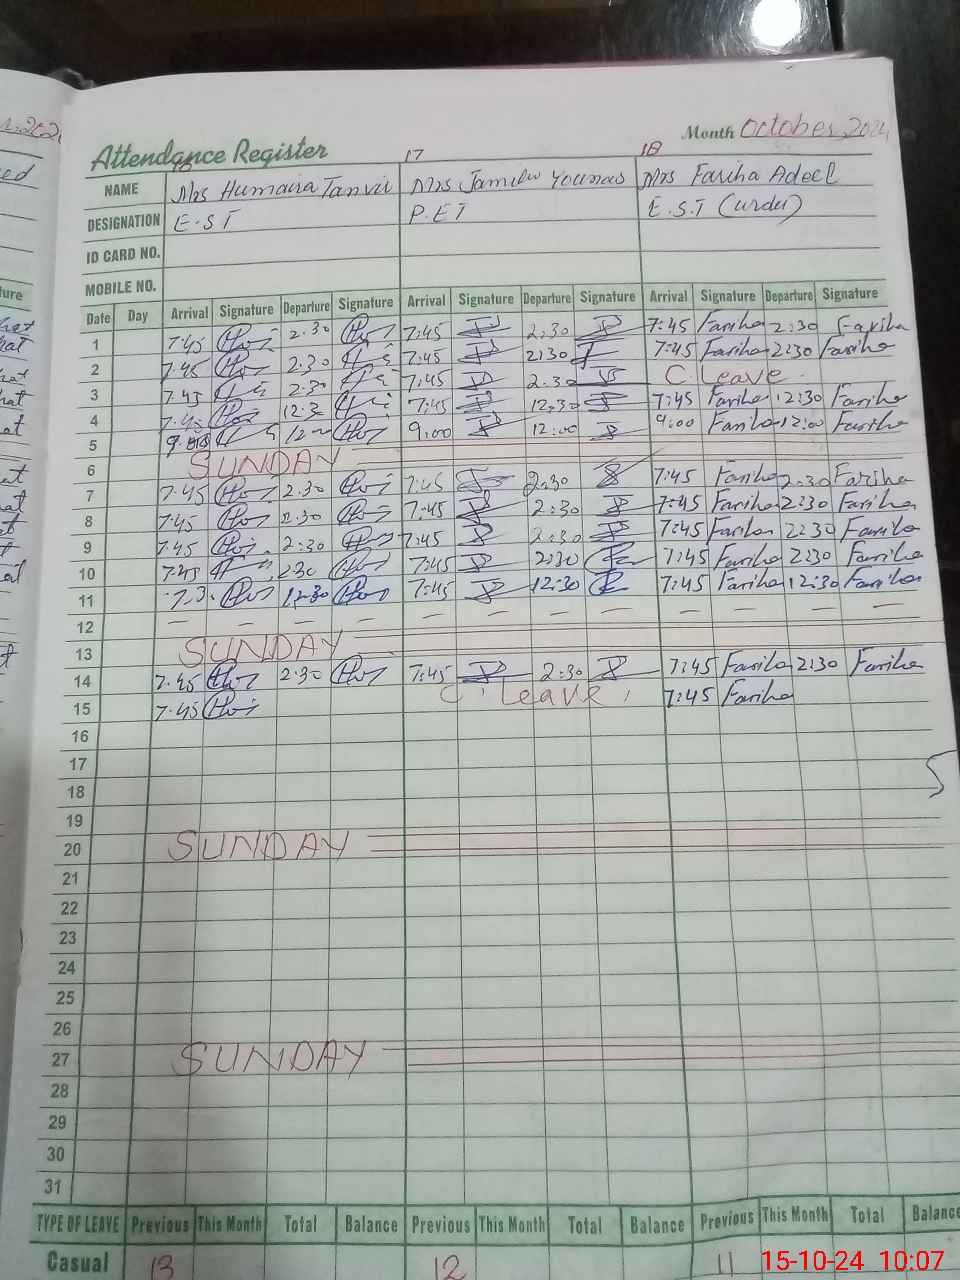 Month October 2024
Attendance Register
16 17 18
NAME Mrs Humaira Tanvir Mrs Jamila Younas Mrs Fariha Adeel
DESIGNATION E.S.T P.E.T E.S.T (urdu)
ID CARD NO.
MOBILE NO.
Date Day Arrival Signature Departure Signature Arrival Signature Departure Signature Arrival Signature Departure Signature
1 7.45 2.30 7:45 2:30 7:45 Fariha 2:30 Fariha
2 7.45 2.30 7:45 2:30 7:45 Fariha 2:30 Fariha
3 7.45 2.30 7:45 2.30 C. Leave.
4 7.45 12.3 7:45 12:30 7:45 Fariha 12:30 Fariha
5 9:00 12:00 9:00 Fariha 12:00 Fariha
6 SUNDAY
7 7.45 2.30 7:45 2:30 7:45 Fariha 2:30 Fariha
8 7.45 2.30 7:45 2:30 7:45 Fariha 2:30 Fariha
9 7.45 2:30 7:45 2:30 7:45 Fariha 2:30 Fariha
10 7.45 2.30 7:45 2:30 7:45 Fariha 2:30 Fariha
11 12:30 7:45 12:30 7:45 Fariha 12:30 Fariha
12 — — — — — — — — — — — —
13 SUNDAY
14 7.45 2.30 7:45 2:30 7:45 Fariha 2:30 Fariha
15 7.45 C. Leave. 7:45 Fariha
16
17
18
19
20 SUNDAY
21
22
23
24
25
26
27 SUNDAY
28
29
30
31
TYPE OF LEAVE Previous This Month Total Balance Previous This Month Total Balance Previous This Month Total Balance
Casual 13 12 11
15-10-24 10:07